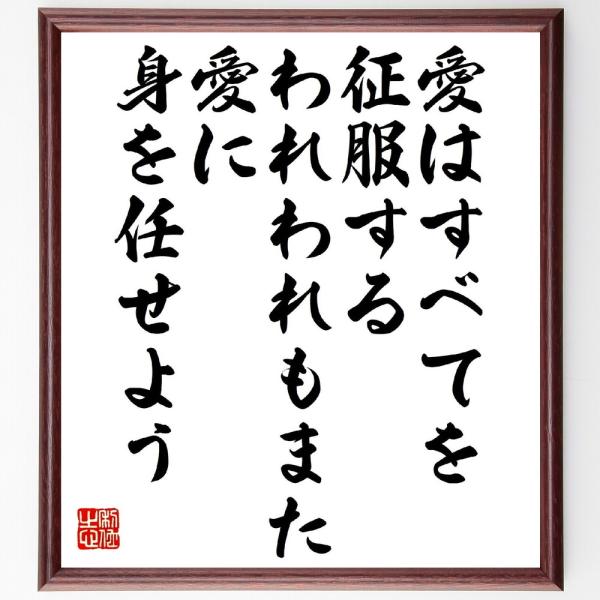 愛はすべてを
征服する
われわれもまた
愛に
身を任せよう